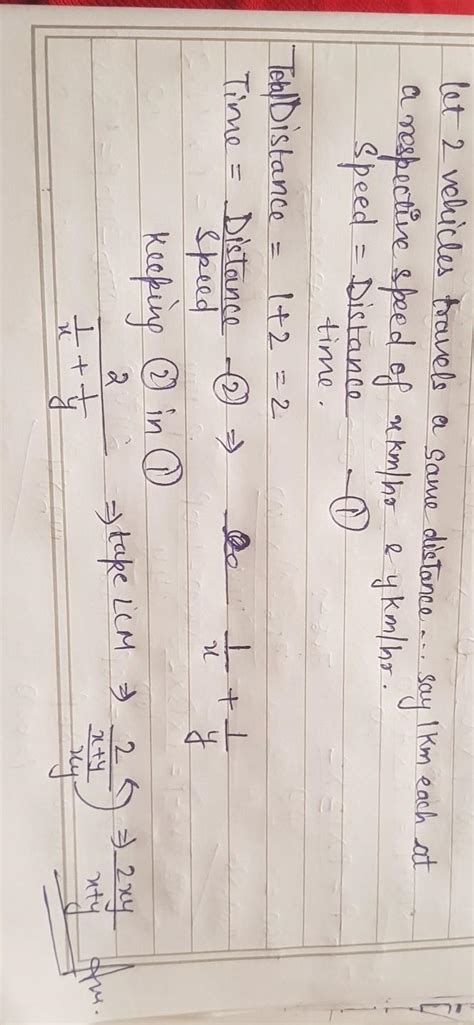 let 2 vehicles travels a same distance... say 1km each at
a respective speed of x km/hr & y km/hr.
Speed = Distance / time. — ①
Total Distance = 1+2 = 2
Time = Distance / Speed — ② ⇒ 1/x + 1/y
Keeping ② in ①
2 / (1/x + 1/y) ⇒ take LCM ⇒ 2 / ((x+y)/xy) ⇒ 2xy / (x+y) Ans.